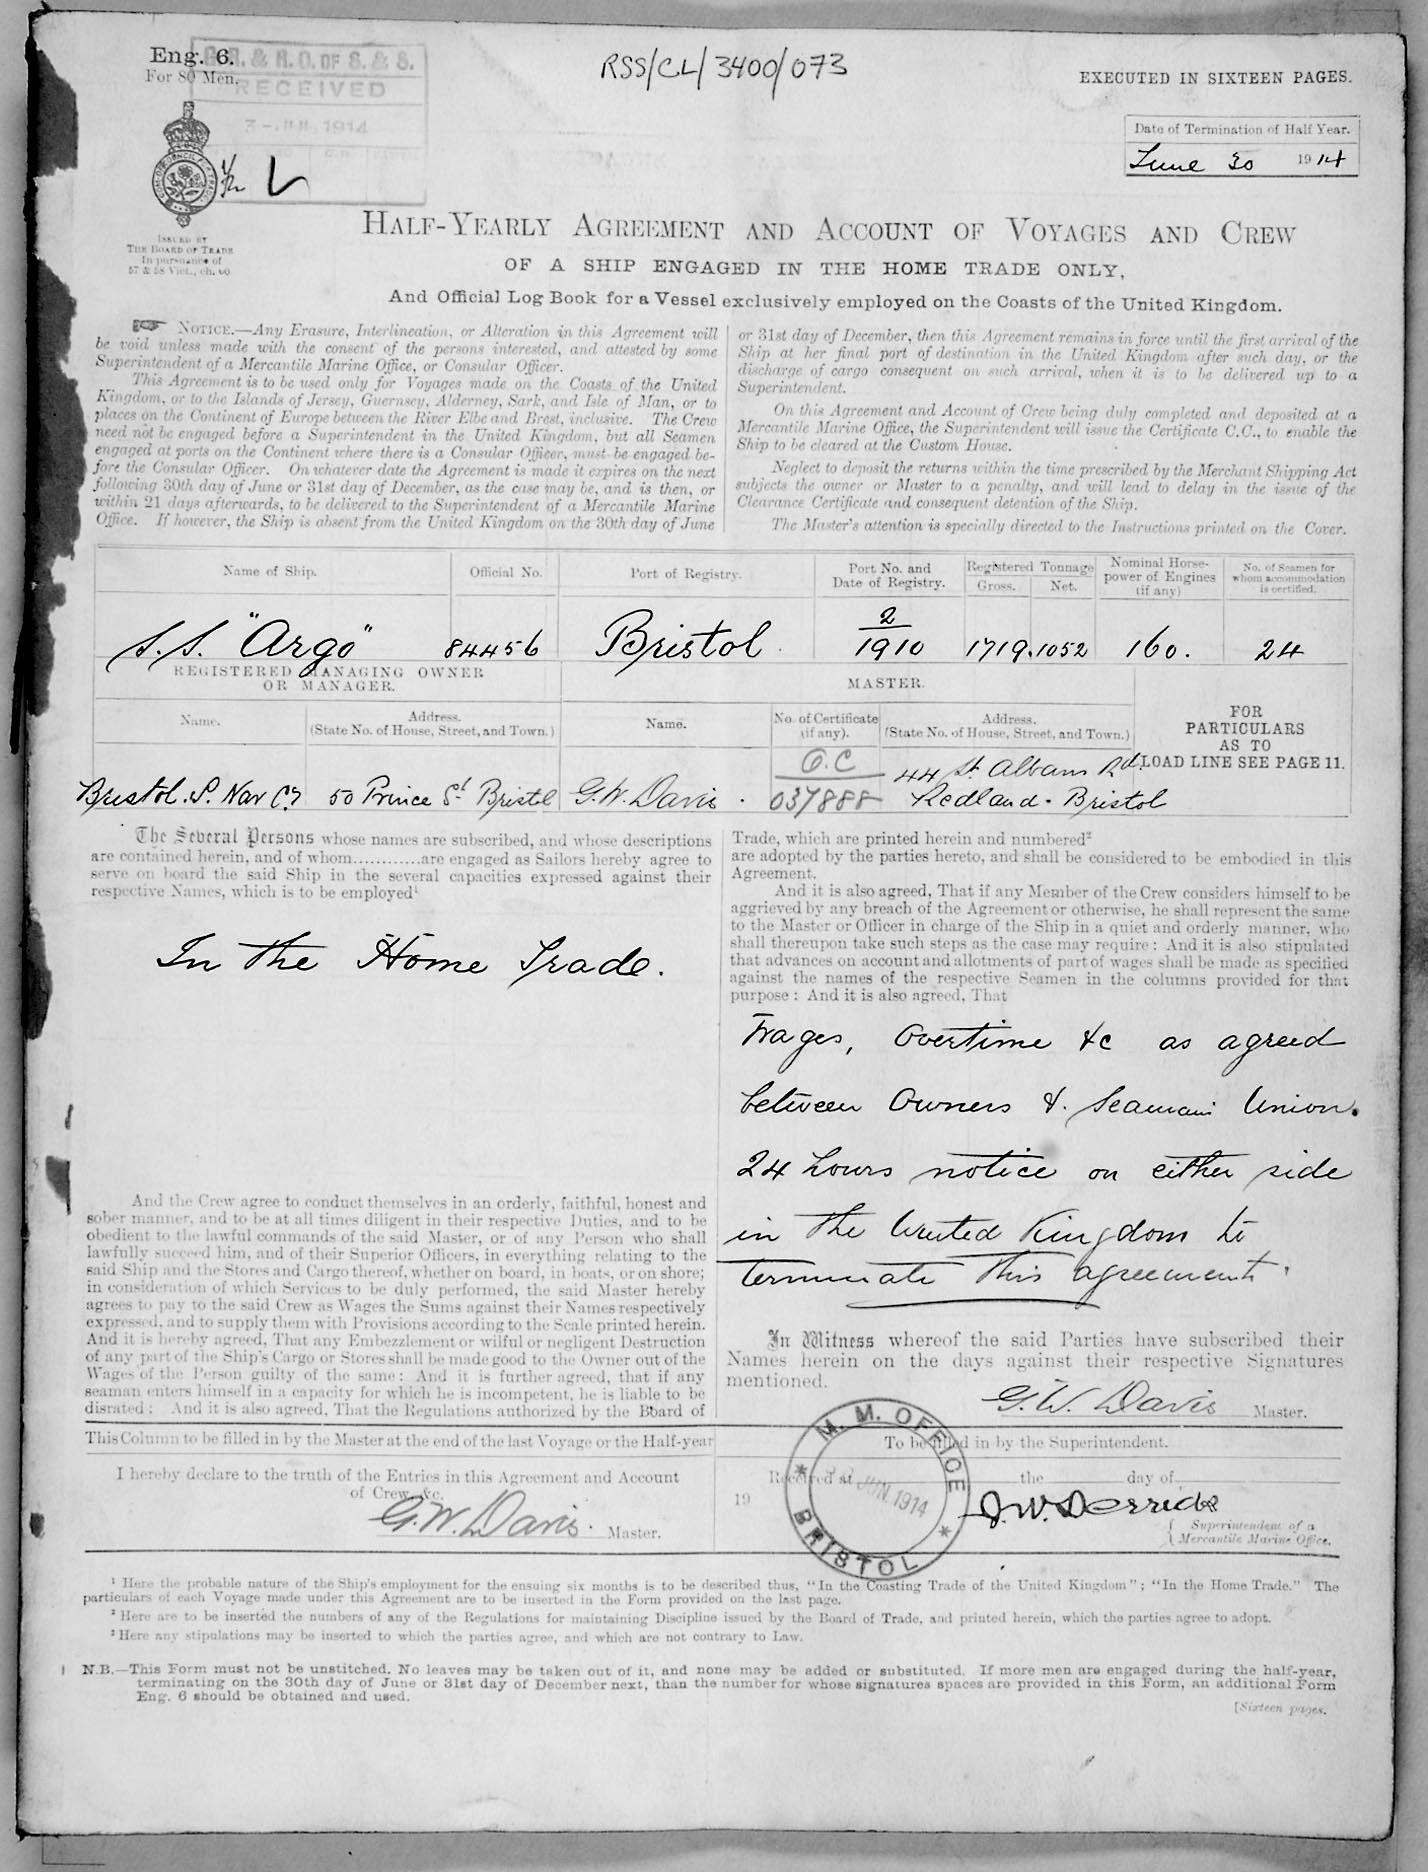 Eng. 6.
For 80 Men.
G. R. & R. O. OF S. & S.
RECEIVED
3-JUL 1914
RSS/CL/3400/073
EXECUTED IN SIXTEEN PAGES.
Date of Termination of Half Year.
June 30 1914
ISSUED BY
THE BOARD OF TRADE
In pursuance of
57 & 58 Vict., ch. 60
HALF-YEARLY AGREEMENT AND ACCOUNT OF VOYAGES AND CREW
OF A SHIP ENGAGED IN THE HOME TRADE ONLY,
And Official Log Book for a Vessel exclusively employed on the Coasts of the United Kingdom.
NOTICE.—Any Erasure, Interlineation, or Alteration in this Agreement will
be void unless made with the consent of the persons interested, and attested by some
Superintendent of a Mercantile Marine Office, or Consular Officer.
This Agreement is to be used only for Voyages made on the Coasts of the United
Kingdom, or to the Islands of Jersey, Guernsey, Alderney, Sark, and Isle of Man, or to
places on the Continent of Europe between the River Elbe and Brest, inclusive. The Crew
need not be engaged before a Superintendent in the United Kingdom, but all Seamen
engaged at ports on the Continent where there is a Consular Officer, must be engaged be-
fore the Consular Officer. On whatever date the Agreement is made it expires on the next
following 30th day of June or 31st day of December, as the case may be, and is then, or
within 21 days afterwards, to be delivered to the Superintendent of a Mercantile Marine
Office. If however, the Ship is absent from the United Kingdom on the 30th day of June
or 31st day of December, then this Agreement remains in force until the first arrival of the
Ship at her final port of destination in the United Kingdom after such day, or the
discharge of cargo consequent on such arrival, when it is to be delivered up to a
Superintendent.
On this Agreement and Account of Crew being duly completed and deposited at a
Mercantile Marine Office, the Superintendent will issue the Certificate C.C., to enable the
Ship to be cleared at the Custom House.
Neglect to deposit the returns within the time prescribed by the Merchant Shipping Act
subjects the owner or Master to a penalty, and will lead to delay in the issue of the
Clearance Certificate and consequent detention of the Ship.
The Master's attention is specially directed to the Instructions printed on the Cover.
Name of Ship. Official No. Port of Registry. Port No. and Date of Registry. Registered Tonnage Gross. Net. Nominal Horse-power of Engines (if any) No. of Seamen for whom accommodation is certified.
S.S. "Argo" 84456 Bristol 2/1910 1719. 1052 160. 24
REGISTERED MANAGING OWNER
OR MANAGER.
MASTER.
Name. Address. (State No. of House, Street, and Town.) Name. No. of Certificate (if any). Address. (State No. of House, Street, and Town.)
FOR
PARTICULARS
AS TO
LOAD LINE SEE PAGE 11.
Bristol S. Nav Co 50 Prince St Bristol G.W. Davis. O.C 037888 44 St Albans Rd.
Redland - Bristol
The Several Persons whose names are subscribed, and whose descriptions
are contained herein, and of whom............are engaged as Sailors hereby agree to
serve on board the said Ship in the several capacities expressed against their
respective Names, which is to be employed¹
In the Home Trade.
And the Crew agree to conduct themselves in an orderly, faithful, honest and
sober manner, and to be at all times diligent in their respective Duties, and to be
obedient to the lawful commands of the said Master, or of any Person who shall
lawfully succeed him, and of their Superior Officers, in everything relating to the
said Ship and the Stores and Cargo thereof, whether on board, in boats, or on shore;
in consideration of which Services to be duly performed, the said Master hereby
agrees to pay to the said Crew as Wages the Sums against their Names respectively
expressed, and to supply them with Provisions according to the Scale printed herein.
And it is hereby agreed, That any Embezzlement or wilful or negligent Destruction
of any part of the Ship's Cargo or Stores shall be made good to the Owner out of the
Wages of the Person guilty of the same: And it is further agreed, that if any
seaman enters himself in a capacity for which he is incompetent, he is liable to be
disrated: And it is also agreed, That the Regulations authorized by the Board of
Trade, which are printed herein and numbered²
are adopted by the parties hereto, and shall be considered to be embodied in this
Agreement.
And it is also agreed, That if any Member of the Crew considers himself to be
aggrieved by any breach of the Agreement or otherwise, he shall represent the same
to the Master or Officer in charge of the Ship in a quiet and orderly manner, who
shall thereupon take such steps as the case may require: And it is also stipulated
that advances on account and allotments of part of wages shall be made as specified
against the names of the respective Seamen in the columns provided for that
purpose: And it is also agreed, That
Wages, Overtime &c as agreed
between Owners & Seamans Union.
24 hours notice on either side
in the United Kingdom to
terminate this agreement.
In Witness whereof the said Parties have subscribed their
Names herein on the days against their respective Signatures
mentioned.
G.W. Davis Master.
This Column to be filled in by the Master at the end of the last Voyage or the Half-year
I hereby declare to the truth of the Entries in this Agreement and Account
of Crew, &c.
G.W. Davis. Master.
To be filled in by the Superintendent.
Received at the day of
19
J.W. Derrick
Superintendent of a
Mercantile Marine Office.
M. M. OFFICE
JUN. 1914
BRISTOL
¹ Here the probable nature of the Ship's employment for the ensuing six months is to be described thus, "In the Coasting Trade of the United Kingdom"; "In the Home Trade." The
particulars of each Voyage made under this Agreement are to be inserted in the Form provided on the last page.
² Here are to be inserted the numbers of any of the Regulations for maintaining Discipline issued by the Board of Trade, and printed herein, which the parties agree to adopt.
³ Here any stipulations may be inserted to which the parties agree, and which are not contrary to Law.
N.B.—This Form must not be unstitched. No leaves may be taken out of it, and none may be added or substituted. If more men are engaged during the half-year,
terminating on the 30th day of June or 31st day of December next, than the number for whose signatures spaces are provided in this Form, an additional Form
Eng. 6 should be obtained and used.
[Sixteen pages.